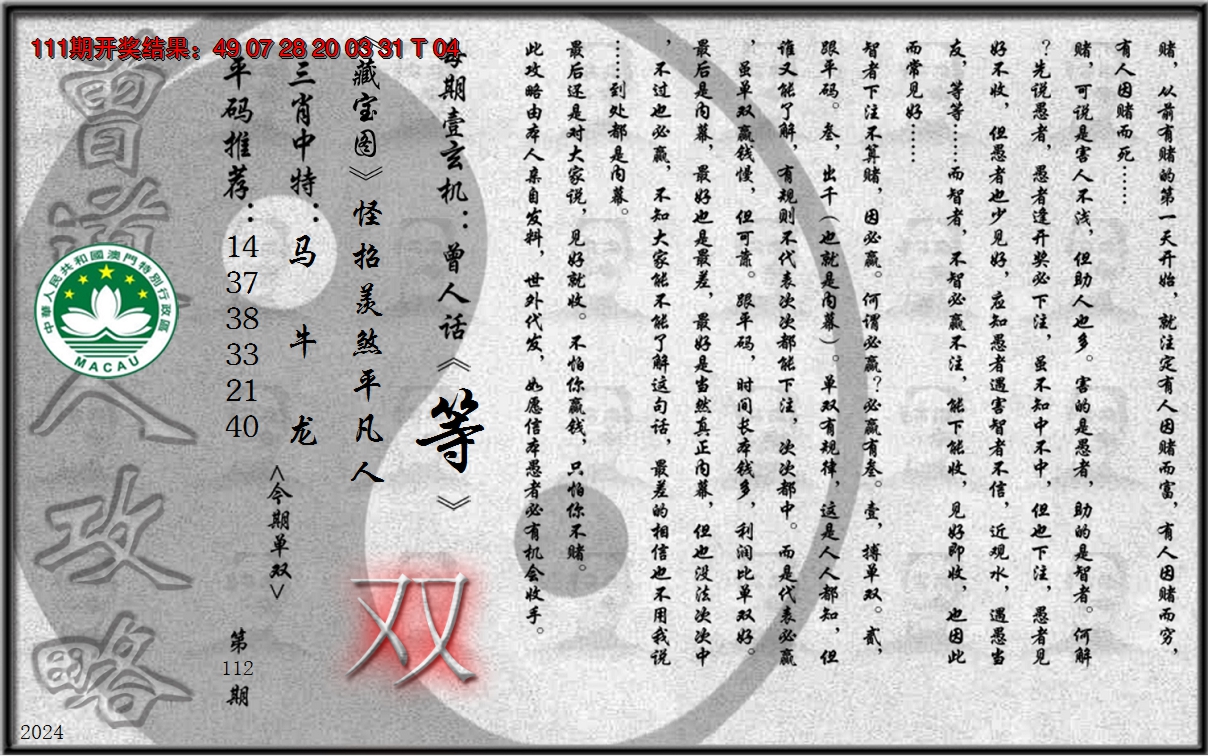 111期开奖结果：49 07 28 20 03 31 T 04
赌，从前有赌的第一天开始，就注定有人因赌而富，有人因赌而穷，
有人因赌而死……
赌，可说是害人不浅，但助人也多。害的是愚者，助的是智者。何解
？先说愚者，愚者逢开奖必下注，虽不知中不中，但也下注，愚者见
好不收，但愚者也少见好，应知愚者遇害智者不信，近观水，遇愚当
友，等等……而智者，不智必赢不注，能下能收，见好即收，也因此
而常见好……
智者下注不算赌，因必赢。何谓必赢？必赢有叁。壹，搏单双。贰，
跟平码。叁，出千（也就是内幕）。单双有规律，这是人人都知，但
谁又能了解，有规则不代表次次都能下注，次次都中。而是代表必赢
，虽单双赢钱慢，但可靠。跟平码，时间长本钱多，利润比单双好。
最后是内幕，最好也是最差，最好是当然真正内幕，但也没法次次中
，不过也必赢，不知大家能不能了解这句话，最差的相信也不用我说
……到处都是内幕。
最后还是对大家说，见好就收。不怕你赢钱，只怕你不赌。
此攻略由本人亲自发料，世外代发，如愿信本愚者必有机会收手。
每期壹玄机：曾人话《等》
《藏宝图》怪招羡煞平凡人
双
三肖中特：马 牛 龙
<今期单双>
平码推荐：
14
37
38
33
21
40
第
112
期
曾道人攻略
中華人民共和國澳門特別行政區
MACAU
2024